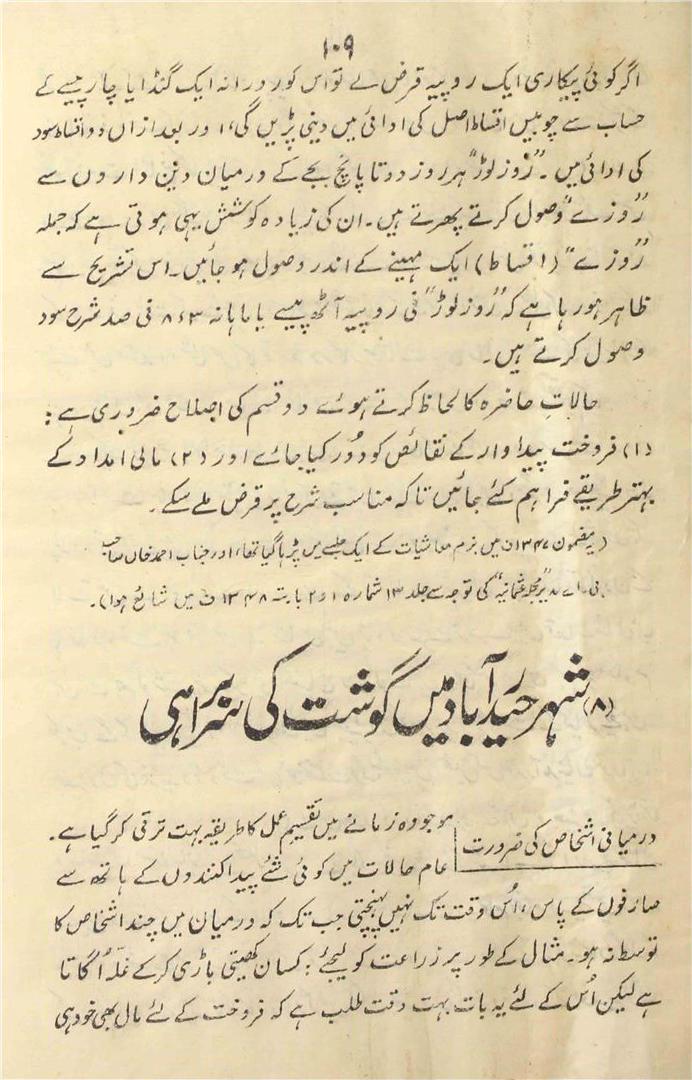 ۱۰۹
اگر کوئی بیکاری ایک روپیہ قرض لے تو اس کو روزانہ ایک گنڈا یا چار پیسے کے
حساب سے چوبیس اقساط اصل کی ادائی میں دینی پڑیں گی، اور بعد ازاں دو اقساط سود
کی ادائی میں۔ "روز لوڑ" ہر روز دو تا پانچ بجے کے درمیان دین داروں سے
"روزے" وصول کرتے پھرتے ہیں۔ ان کی زیادہ کوشش یہی ہوتی ہے کہ جملہ
"روزے" (اقساط) ایک مہینے کے اندر وصول ہو جائیں۔ اس تشریح سے
ظاہر ہو رہا ہے کہ "روز لوڑ" فی روپیہ آٹھ پیسے یا ماہانہ ۸٫۳ فی صد شرح سود
وصول کرتے ہیں۔
حالاتِ حاضرہ کا لحاظ کرتے ہوئے دو قسم کی اصلاح ضروری ہے:
(۱) فروخت پیداوار کے نقائص کو دُور کیا جائے اور (۲) مالی امداد کے
بہتر طریقے فراہم کئے جائیں تاکہ مناسب شرح پر قرض ملے سکے۔
(یہ مضمون ۱۳۴۷ ف میں بزم معاشیات کے ایک جلسے میں پڑھا گیا تھا، اور جناب احمد خان صاحب
بی۔ اے مدیر "مجلہ عثمانیہ" کی توجہ سے جلد ۱۳ شمارہ ۱ و ۲ بابتہ ۱۳۴۸ ف میں شائع ہوا)۔
(۸) شہر حیدرآباد میں گوشت کی سربراہی
درمیانی اشخاص کی ضرورت
موجودہ زمانے میں تقسیمِ عمل کا طریقہ بہت ترقی کر گیا ہے۔
عام حالات میں کوئی شئے پیدا کنندوں کے ہاتھ سے
صارفوں کے پاس، اُس وقت تک نہیں پہنچتی جب تک کہ درمیان میں چند اشخاص کا
توسط نہ ہو۔ مثال کے طور پر زراعت کو لیجئے: کسان کھیتی باڑی کرکے غلّہ اُگاتا
ہے لیکن اُس کے لئے یہ بات بہت دقت طلب ہے کہ فروخت کے لئے مال بھی خود ہی